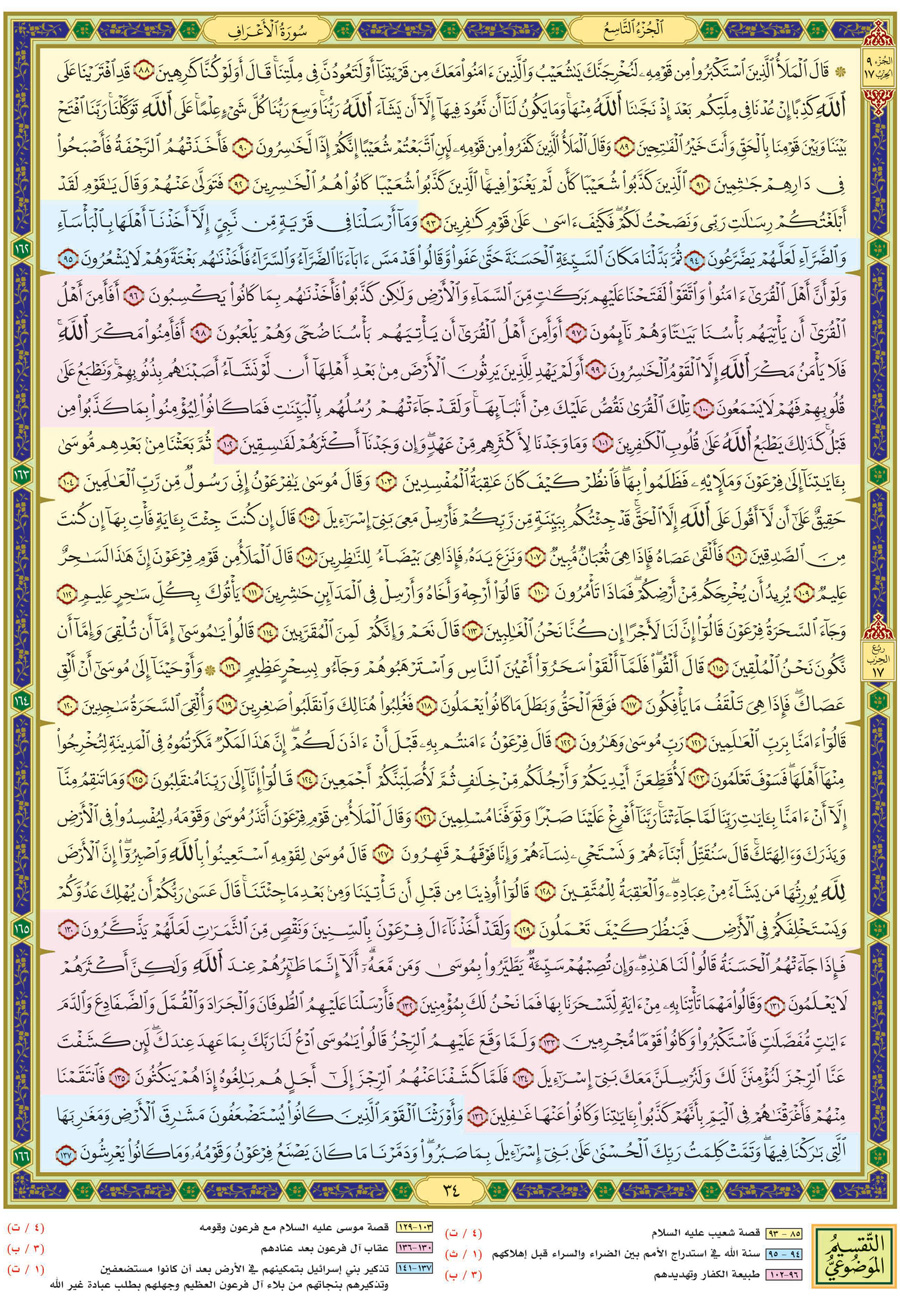 الجُزْءُ التَّاسِعُ
سُورَةُ الْأَعْرَافِ
الجُزء ٩
الحِزب ١٧
۞ قَالَ الْمَلَأُ الَّذِينَ اسْتَكْبَرُوا مِن قَوْمِهِ لَنُخْرِجَنَّكَ يَا شُعَيْبُ وَالَّذِينَ ءَامَنُوا مَعَكَ مِن قَرْيَتِنَا أَوْ لَتَعُودُنَّ فِي مِلَّتِنَا ۚ قَالَ أَوَلَوْ كُنَّا كَارِهِينَ ٨٨ قَدِ افْتَرَيْنَا عَلَى
اللَّهِ كَذِبًا إِنْ عُدْنَا فِي مِلَّتِكُم بَعْدَ إِذْ نَجَّىٰنَا اللَّهُ مِنْهَا ۚ وَمَا يَكُونُ لَنَا أَن نَّعُودَ فِيهَا إِلَّا أَن يَشَاءَ اللَّهُ رَبُّنَا ۚ وَسِعَ رَبُّنَا كُلَّ شَيْءٍ عِلْمًا ۚ عَلَى اللَّهِ تَوَكَّلْنَا ۚ رَبَّنَا افْتَحْ
بَيْنَنَا وَبَيْنَ قَوْمِنَا بِالْحَقِّ وَأَنتَ خَيْرُ الْفَاتِحِينَ ٨٩ وَقَالَ الْمَلَأُ الَّذِينَ كَفَرُوا مِن قَوْمِهِ لَئِنِ اتَّبَعْتُمْ شُعَيْبًا إِنَّكُمْ إِذًا لَّخَاسِرُونَ ٩٠ فَأَخَذَتْهُمُ الرَّجْفَةُ فَأَصْبَحُوا
فِي دَارِهِمْ جَاثِمِينَ ٩١ الَّذِينَ كَذَّبُوا شُعَيْبًا كَأَن لَّمْ يَغْنَوْا فِيهَا ۚ الَّذِينَ كَذَّبُوا شُعَيْبًا كَانُوا هُمُ الْخَاسِرِينَ ٩٢ فَتَوَلَّىٰ عَنْهُمْ وَقَالَ يَا قَوْمِ لَقَدْ
أَبْلَغْتُكُمْ رِسَالَاتِ رَبِّي وَنَصَحْتُ لَكُمْ ۖ فَكَيْفَ ءَاسَىٰ عَلَىٰ قَوْمٍ كَافِرِينَ ٩٣ وَمَا أَرْسَلْنَا فِي قَرْيَةٍ مِّن نَّبِيٍّ إِلَّا أَخَذْنَا أَهْلَهَا بِالْبَأْسَاءِ
وَالضَّرَّاءِ لَعَلَّهُمْ يَضَّرَّعُونَ ٩٤ ثُمَّ بَدَّلْنَا مَكَانَ السَّيِّئَةِ الْحَسَنَةَ حَتَّىٰ عَفَوا وَّقَالُوا قَدْ مَسَّ ءَابَاءَنَا الضَّرَّاءُ وَالسَّرَّاءُ فَأَخَذْنَاهُم بَغْتَةً وَهُمْ لَا يَشْعُرُونَ ٩٥
١٦٢
وَلَوْ أَنَّ أَهْلَ الْقُرَىٰ ءَامَنُوا وَاتَّقَوْا لَفَتَحْنَا عَلَيْهِم بَرَكَاتٍ مِّنَ السَّمَاءِ وَالْأَرْضِ وَلَٰكِن كَذَّبُوا فَأَخَذْنَاهُم بِمَا كَانُوا يَكْسِبُونَ ٩٦ أَفَأَمِنَ أَهْلُ
الْقُرَىٰ أَن يَأْتِيَهُم بَأْسُنَا بَيَاتًا وَهُمْ نَائِمُونَ ٩٧ أَوَأَمِنَ أَهْلُ الْقُرَىٰ أَن يَأْتِيَهُم بَأْسُنَا ضُحًى وَهُمْ يَلْعَبُونَ ٩٨ أَفَأَمِنُوا مَكْرَ اللَّهِ ۚ
فَلَا يَأْمَنُ مَكْرَ اللَّهِ إِلَّا الْقَوْمُ الْخَاسِرُونَ ٩٩ أَوَلَمْ يَهْدِ لِلَّذِينَ يَرِثُونَ الْأَرْضَ مِن بَعْدِ أَهْلِهَا أَن لَّوْ نَشَاءُ أَصَبْنَاهُم بِذُنُوبِهِمْ ۚ وَنَطْبَعُ عَلَىٰ
قُلُوبِهِمْ فَهُمْ لَا يَسْمَعُونَ ١٠٠ تِلْكَ الْقُرَىٰ نَقُصُّ عَلَيْكَ مِنْ أَنبَائِهَا ۚ وَلَقَدْ جَاءَتْهُمْ رُسُلُهُم بِالْبَيِّنَاتِ فَمَا كَانُوا لِيُؤْمِنُوا بِمَا كَذَّبُوا مِن
قَبْلُ ۚ كَذَٰلِكَ يَطْبَعُ اللَّهُ عَلَىٰ قُلُوبِ الْكَافِرِينَ ١٠١ وَمَا وَجَدْنَا لِأَكْثَرِهِم مِّنْ عَهْدٍ ۖ وَإِن وَجَدْنَا أَكْثَرَهُمْ لَفَاسِقِينَ ١٠٢ ثُمَّ بَعَثْنَا مِن بَعْدِهِم مُّوسَىٰ
بِـَٔايَاتِنَا إِلَىٰ فِرْعَوْنَ وَمَلَإِيهِ فَظَلَمُوا بِهَا ۖ فَانظُرْ كَيْفَ كَانَ عَاقِبَةُ الْمُفْسِدِينَ ١٠٣ وَقَالَ مُوسَىٰ يَا فِرْعَوْنُ إِنِّي رَسُولٌ مِّن رَّبِّ الْعَالَمِينَ ١٠٤
١٦٣
حَقِيقٌ عَلَىٰ أَن لَّا أَقُولَ عَلَى اللَّهِ إِلَّا الْحَقَّ ۚ قَدْ جِئْتُكُم بِبَيِّنَةٍ مِّن رَّبِّكُمْ فَأَرْسِلْ مَعِيَ بَنِي إِسْرَائِيلَ ١٠٥ قَالَ إِن كُنتَ جِئْتَ بِـَٔايَةٍ فَأْتِ بِهَا إِن كُنتَ
مِنَ الصَّادِقِينَ ١٠٦ فَأَلْقَىٰ عَصَاهُ فَإِذَا هِيَ ثُعْبَانٌ مُّبِينٌ ١٠٧ وَنَزَعَ يَدَهُ فَإِذَا هِيَ بَيْضَاءُ لِلنَّاظِرِينَ ١٠٨ قَالَ الْمَلَأُ مِن قَوْمِ فِرْعَوْنَ إِنَّ هَٰذَا لَسَاحِرٌ
عَلِيمٌ ١٠٩ يُرِيدُ أَن يُخْرِجَكُم مِّنْ أَرْضِكُمْ ۖ فَمَاذَا تَأْمُرُونَ ١١٠ قَالُوا أَرْجِهْ وَأَخَاهُ وَأَرْسِلْ فِي الْمَدَائِنِ حَاشِرِينَ ١١١ يَأْتُوكَ بِكُلِّ سَاحِرٍ عَلِيمٍ ١١٢
وَجَاءَ السَّحَرَةُ فِرْعَوْنَ قَالُوا إِنَّ لَنَا لَأَجْرًا إِن كُنَّا نَحْنُ الْغَالِبِينَ ١١٣ قَالَ نَعَمْ وَإِنَّكُمْ لَمِنَ الْمُقَرَّبِينَ ١١٤ قَالُوا يَا مُوسَىٰ إِمَّا أَن تُلْقِيَ وَإِمَّا أَن
نَّكُونَ نَحْنُ الْمُلْقِينَ ١١٥ قَالَ أَلْقُوا ۖ فَلَمَّا أَلْقَوْا سَحَرُوا أَعْيُنَ النَّاسِ وَاسْتَرْهَبُوهُمْ وَجَاءُو بِسِحْرٍ عَظِيمٍ ١١٦ ۞ وَأَوْحَيْنَا إِلَىٰ مُوسَىٰ أَنْ أَلْقِ
رُبع
الحِزب
١٧
عَصَاكَ ۖ فَإِذَا هِيَ تَلْقَفُ مَا يَأْفِكُونَ ١١٧ فَوَقَعَ الْحَقُّ وَبَطَلَ مَا كَانُوا يَعْمَلُونَ ١١٨ فَغُلِبُوا هُنَالِكَ وَانقَلَبُوا صَاغِرِينَ ١١٩ وَأُلْقِيَ السَّحَرَةُ سَاجِدِينَ ١٢٠
١٦٤
قَالُوا ءَامَنَّا بِرَبِّ الْعَالَمِينَ ١٢١ رَبِّ مُوسَىٰ وَهَارُونَ ١٢٢ قَالَ فِرْعَوْنُ ءَامَنتُم بِهِ قَبْلَ أَنْ ءَاذَنَ لَكُمْ ۖ إِنَّ هَٰذَا لَمَكْرٌ مَّكَرْتُمُوهُ فِي الْمَدِينَةِ لِتُخْرِجُوا
مِنْهَا أَهْلَهَا ۖ فَسَوْفَ تَعْلَمُونَ ١٢٣ لَأُقَطِّعَنَّ أَيْدِيَكُمْ وَأَرْجُلَكُم مِّنْ خِلَافٍ ثُمَّ لَأُصَلِّبَنَّكُمْ أَجْمَعِينَ ١٢٤ قَالُوا إِنَّا إِلَىٰ رَبِّنَا مُنقَلِبُونَ ١٢٥ وَمَا تَنقِمُ مِنَّا
إِلَّا أَنْ ءَامَنَّا بِـَٔايَاتِ رَبِّنَا لَمَّا جَاءَتْنَا ۚ رَبَّنَا أَفْرِغْ عَلَيْنَا صَبْرًا وَتَوَفَّنَا مُسْلِمِينَ ١٢٦ وَقَالَ الْمَلَأُ مِن قَوْمِ فِرْعَوْنَ أَتَذَرُ مُوسَىٰ وَقَوْمَهُ لِيُفْسِدُوا فِي الْأَرْضِ
وَيَذَرَكَ وَءَالِهَتَكَ ۚ قَالَ سَنُقَتِّلُ أَبْنَاءَهُمْ وَنَسْتَحْيِي نِسَاءَهُمْ وَإِنَّا فَوْقَهُمْ قَاهِرُونَ ١٢٧ قَالَ مُوسَىٰ لِقَوْمِهِ اسْتَعِينُوا بِاللَّهِ وَاصْبِرُوا ۖ إِنَّ الْأَرْضَ
لِلَّهِ يُورِثُهَا مَن يَشَاءُ مِنْ عِبَادِهِ ۖ وَالْعَاقِبَةُ لِلْمُتَّقِينَ ١٢٨ قَالُوا أُوذِينَا مِن قَبْلِ أَن تَأْتِيَنَا وَمِن بَعْدِ مَا جِئْتَنَا ۚ قَالَ عَسَىٰ رَبُّكُمْ أَن يُهْلِكَ عَدُوَّكُمْ
وَيَسْتَخْلِفَكُمْ فِي الْأَرْضِ فَيَنظُرَ كَيْفَ تَعْمَلُونَ ١٢٩ وَلَقَدْ أَخَذْنَا ءَالَ فِرْعَوْنَ بِالسِّنِينَ وَنَقْصٍ مِّنَ الثَّمَرَاتِ لَعَلَّهُمْ يَذَّكَّرُونَ ١٣٠
١٦٥
فَإِذَا جَاءَتْهُمُ الْحَسَنَةُ قَالُوا لَنَا هَٰذِهِ ۖ وَإِن تُصِبْهُمْ سَيِّئَةٌ يَطَّيَّرُوا بِمُوسَىٰ وَمَن مَّعَهُ ۗ أَلَا إِنَّمَا طَائِرُهُمْ عِندَ اللَّهِ وَلَٰكِنَّ أَكْثَرَهُمْ
لَا يَعْلَمُونَ ١٣١ وَقَالُوا مَهْمَا تَأْتِنَا بِهِ مِنْ ءَايَةٍ لِّتَسْحَرَنَا بِهَا فَمَا نَحْنُ لَكَ بِمُؤْمِنِينَ ١٣٢ فَأَرْسَلْنَا عَلَيْهِمُ الطُّوفَانَ وَالْجَرَادَ وَالْقُمَّلَ وَالضَّفَادِعَ وَالدَّمَ
ءَايَاتٍ مُّفَصَّلَاتٍ فَاسْتَكْبَرُوا وَكَانُوا قَوْمًا مُّجْرِمِينَ ١٣٣ وَلَمَّا وَقَعَ عَلَيْهِمُ الرِّجْزُ قَالُوا يَا مُوسَى ادْعُ لَنَا رَبَّكَ بِمَا عَهِدَ عِندَكَ ۖ لَئِن كَشَفْتَ
عَنَّا الرِّجْزَ لَنُؤْمِنَنَّ لَكَ وَلَنُرْسِلَنَّ مَعَكَ بَنِي إِسْرَائِيلَ ١٣٤ فَلَمَّا كَشَفْنَا عَنْهُمُ الرِّجْزَ إِلَىٰ أَجَلٍ هُم بَالِغُوهُ إِذَا هُمْ يَنكُثُونَ ١٣٥ فَانتَقَمْنَا
مِنْهُمْ فَأَغْرَقْنَاهُمْ فِي الْيَمِّ بِأَنَّهُمْ كَذَّبُوا بِـَٔايَاتِنَا وَكَانُوا عَنْهَا غَافِلِينَ ١٣٦ وَأَوْرَثْنَا الْقَوْمَ الَّذِينَ كَانُوا يُسْتَضْعَفُونَ مَشَارِقَ الْأَرْضِ وَمَغَارِبَهَا
الَّتِي بَارَكْنَا فِيهَا ۖ وَتَمَّتْ كَلِمَتُ رَبِّكَ الْحُسْنَىٰ عَلَىٰ بَنِي إِسْرَائِيلَ بِمَا صَبَرُوا ۖ وَدَمَّرْنَا مَا كَانَ يَصْنَعُ فِرْعَوْنُ وَقَوْمُهُ وَمَا كَانُوا يَعْرِشُونَ ١٣٧
١٦٦
٣٤
التَّقْسِيمُ
المَوْضُوعِيُّ
٨٥ - ٩٣ قصة شعيب عليه السلام (٤ / ت)
٩٤ - ٩٥ سنة الله في استدراج الأمم بين الضراء والسراء قبل إهلاكهم (١ / ث)
٩٦-١٠٢ طبيعة الكفار وتهديدهم (٣ / ب)
١٠٣-١٢٩ قصة موسى عليه السلام مع فرعون وقومه (٤ / ت)
١٣٠-١٣٦ عقاب آل فرعون بعد عنادهم (٣ / ب)
١٣٧-١٤١ تذكير بني إسرائيل بتمكينهم في الأرض بعد أن كانوا مستضعفين (١ / ت)
وتذكيرهم بنجاتهم من بلاء آل فرعون العظيم وجهلهم بطلب عبادة غير الله